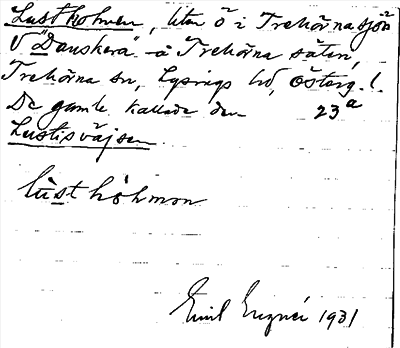 Lustholmen, liten ö i Trehörnasjön
V "Danskera" å Trehörna säteri,
Trehörna sn, Lysings hd, Österg. l.
De gamle kallade den 23ª
Lustisväjsen.
lùst hòlmon
Emil 1931